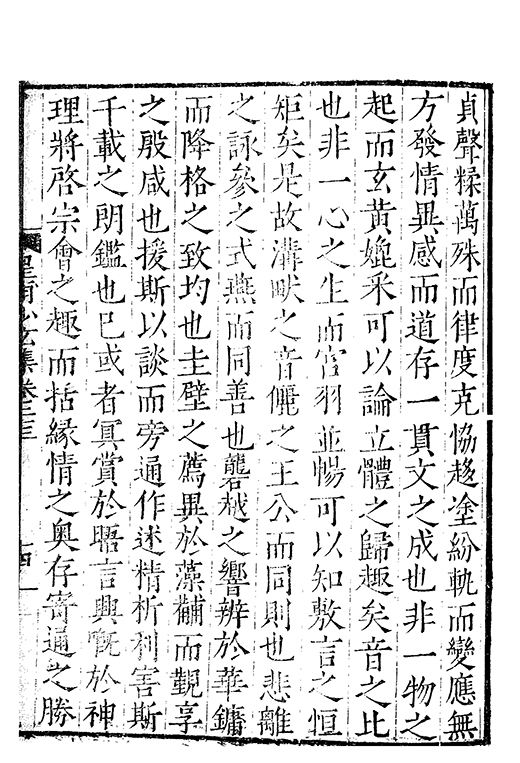 貞聲糅萬殊而律度克恊趍塗紛軌而變應無
方發情異感而道存一貫文之成也非一物之
起而玄黄㛹釆可以論立體之歸趣矣音之比
也非一心之生而宫羽並暢可以知敷言之恒
矩矣是故溝畎之音儷之王公而同則也悲離
之詠參之式燕而同善也礱越之響辨於華鏞
而降格之致均也圭璧之薦異於藻黼而覿享
之殷咸也援斯以談而旁通作述精析利害斯
千載之朗鑑也巳或者冥賞於晤言興慨於神
理將啓宗會之趣而括緣情之奥存寄通之勝
集卷三
十四